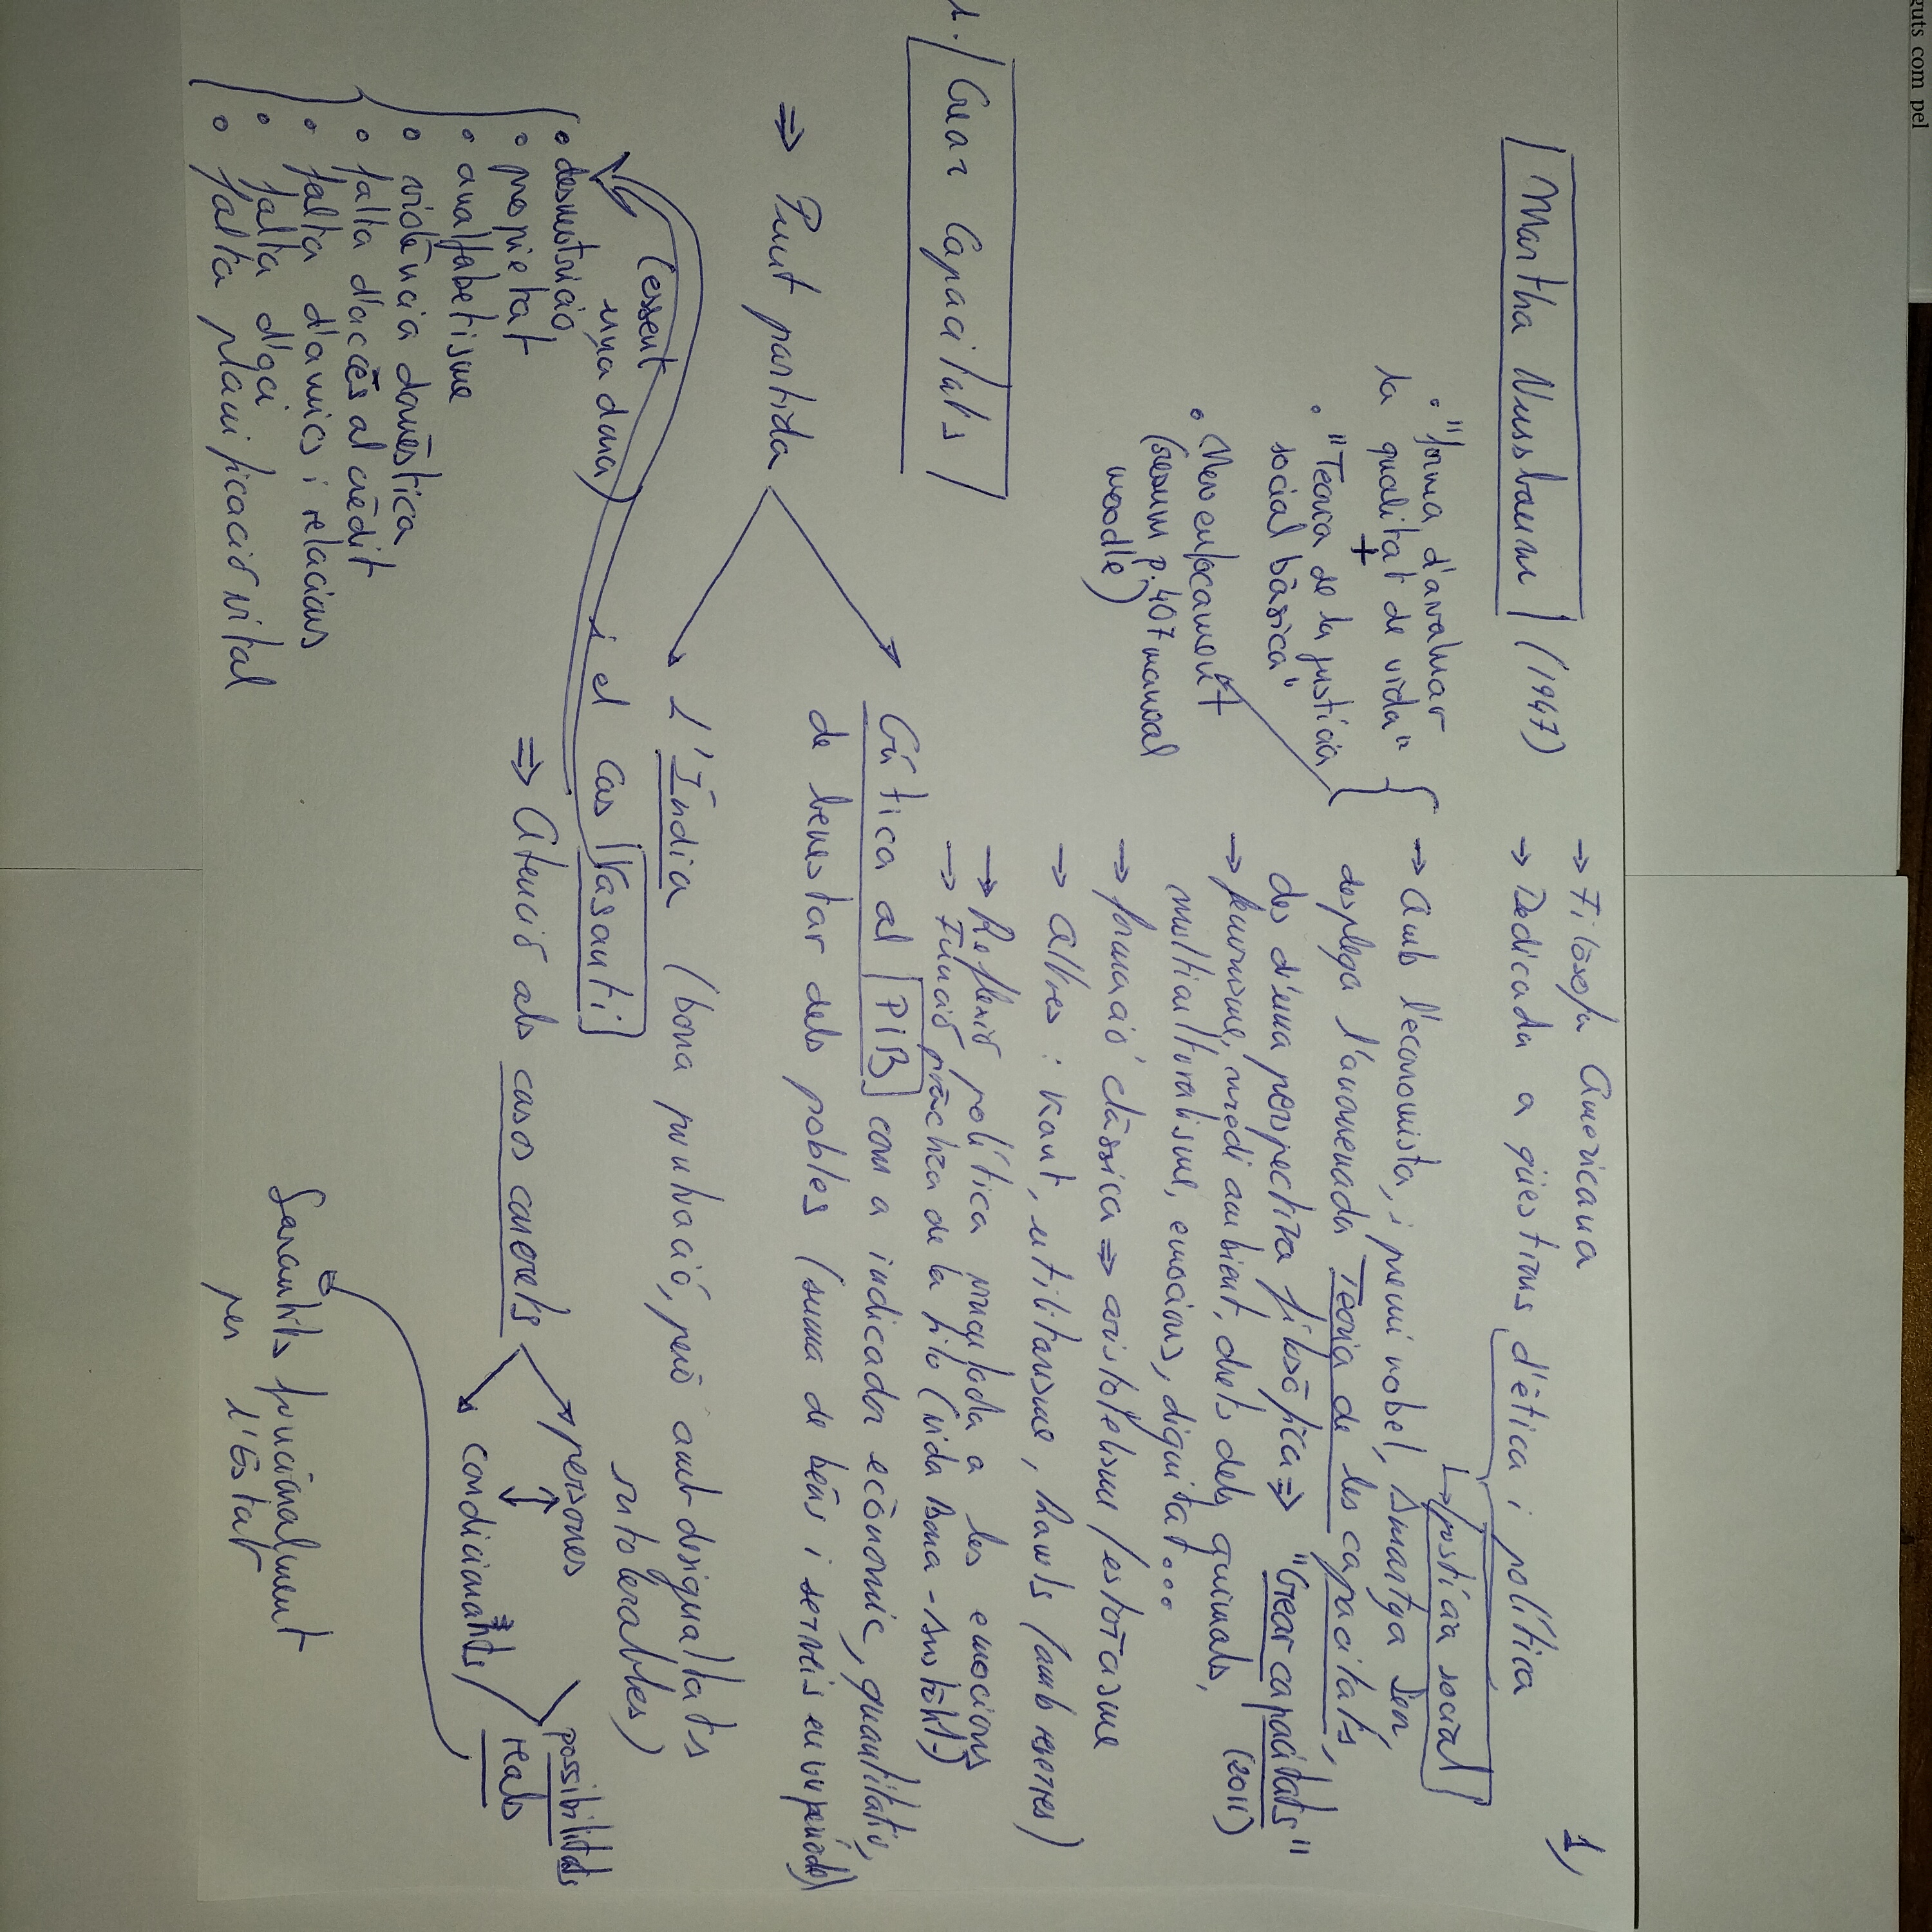 guts com pel
1)
Martha Nussbaum (1947)
→ Filòsofa Americana
→ Dedicada a qüestions d'ètica i política
↳ justícia social
→ Amb l'economista, i premi nobel, Amartya Sen,
desplega l'anomenada Teoria de les capacitats,
des d'una perspectiva filosòfica ⇒ "Crear capacitats"
(2011)
° "forma d'avaluar
la qualitat de vida"
+
° "Teoria de la justícia
social bàsica"
° Nou enfocament
(resum p. 407 manual
moodle)
→ feminisme, medi ambient, drets dels animals,
multiculturalisme, emocions, dignitat...
→ formació clàssica ⇒ aristotelisme / estoïcisme
→ altres : Kant, utilitarisme, Rawls (amb reserves)
→ Reflexió política vinculada a les emocions
→ Funció pràctica de la filo (vida bona - )
1. Crear Capacitats
⇒ Punt partida
Crítica al PIB com a indicador econòmic, quantitatiu,
de benestar dels pobles (suma de béns i serveis en un període)
L'Índia (bona puntuació, però amb desigualtats
intolerables)
i el cas Vasanti
(essent
una dona)
° desnutrició
° propietat
° analfabetisme
° violència domèstica
° falta d'accés al crèdit
° falta d'amics i relacions
° falta d'oci
° falta planificació vital
⇒ Atenció als casos concrets
persones
condicionants
possibilitats
reals
Garantits funcionalment
per l'Estat